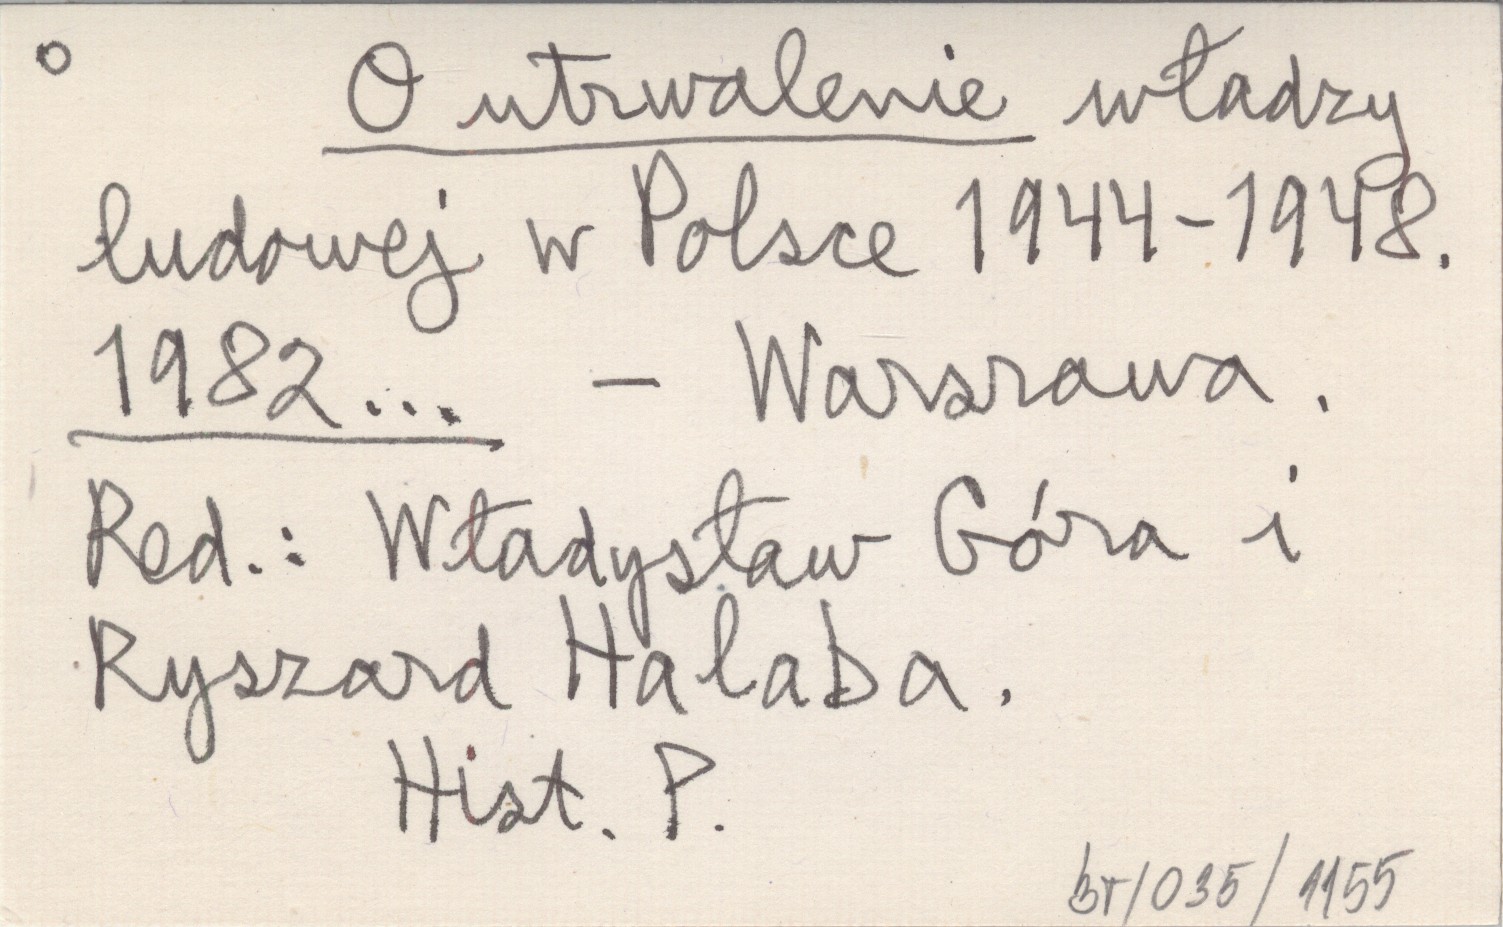 O utrwalenie władzy
ludowej w Polsce 1944-1948.
1982... - Warszawa.
Red.: Władysław Góra i
Ryszard Halaba.
Hist. P.
br/035/1155